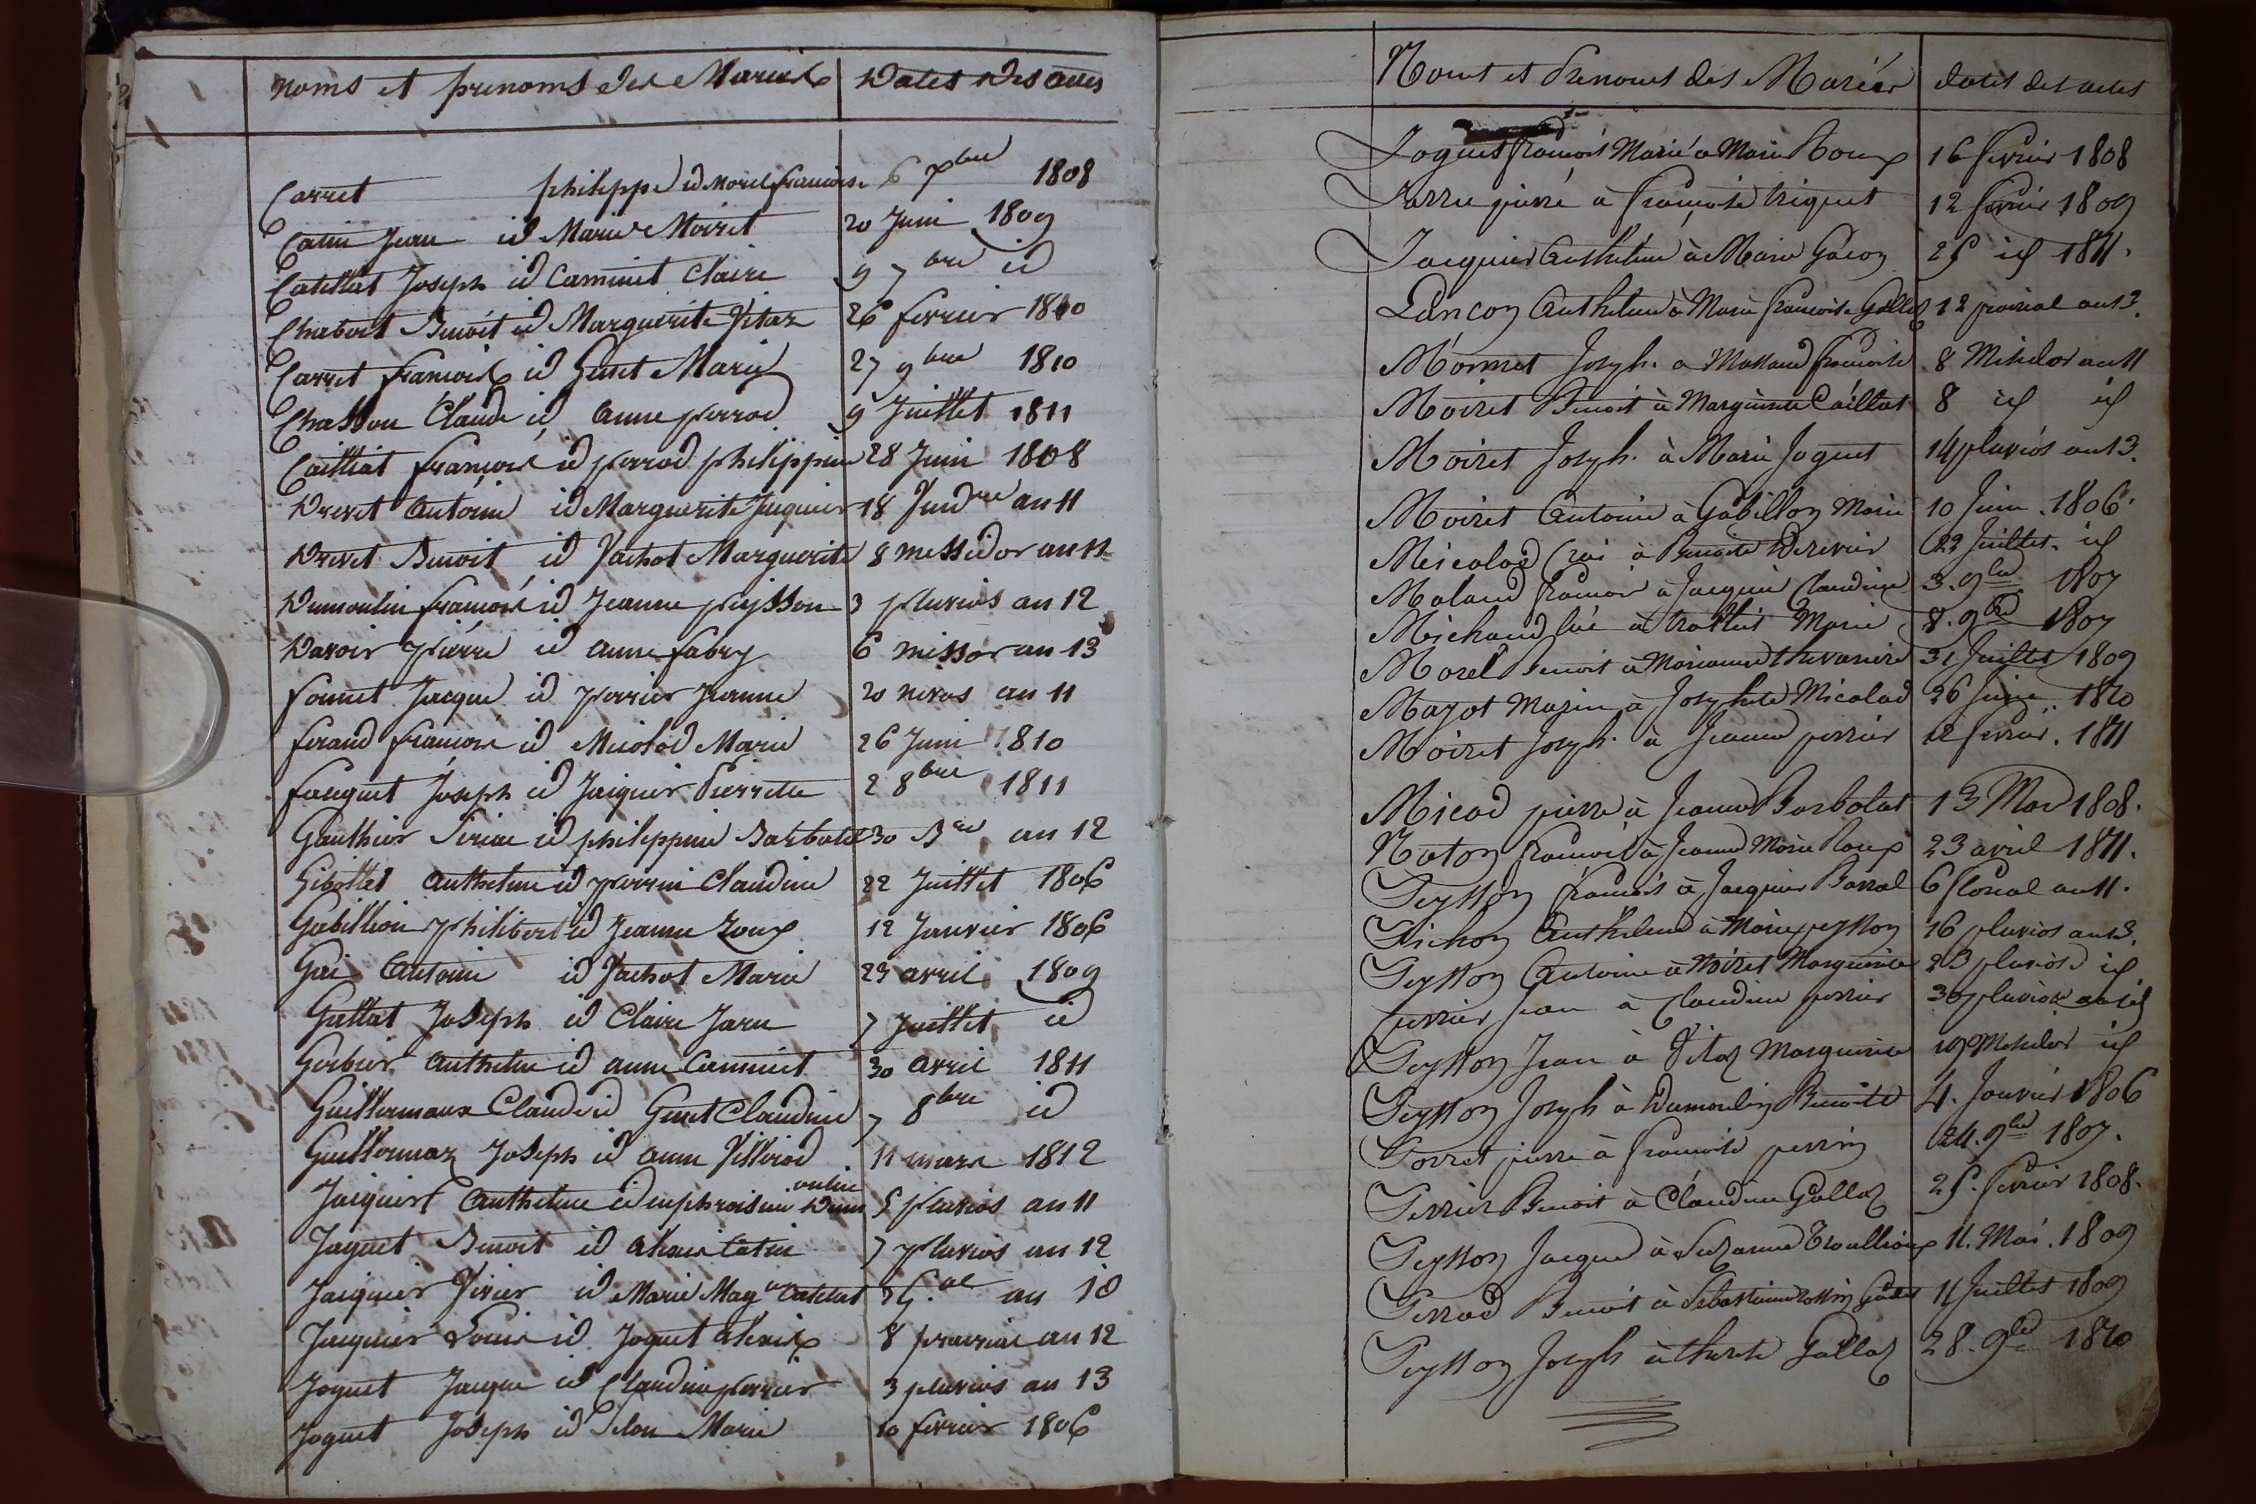 noms et prenoms des Mariés Dates des actes
Carret philippe id Morel francoise 6 7bre 1808
Catin Jean id Marie Moiret 20 Juin 1809
Catillat Joseph id Caminet Claire 9 7bre id
Chabert Benoit id Marguerite Vitaz 26 fevrier 1810
Carret francois id Ginet Marie 27 9bre 1810
Chasson Claude id anne perrod 9 Juillet 1811
Cailliat francois id perrod philippine 28 Juin 1808
Drevet Antoine id Marguerite Jaquier 18 an 11
Drevet Benoit id Vachot Marguerite 8 messidor an 12
Dumoulin francois id Jeanne peysson 3 pluvios an 12
Davoir pierre id anne fabry 6 missor an 13
fornet Jacque id perrier Jeanne 20 nivos an 11
feraud francois id Micolod Marie 26 Juin 1810
fouquet Joseph id Jaiquier Pierrette 2 8bre 1811
Gauthier id philippine Barbolat 30 an 12
Gibollet Anthelme id perrin Claudine 22 Juillet 1806
Gabillion philibert id Jeanne Roux 12 Janvier 1806
Gai Antoine id Vachot Marie 23 avril 1809
Gallat Joseph id Claire Jaru 7 Juillet id
Gerbier anthelme id anne Caminet 30 avril 1811
Guillermaux Claude id Ginet Claudine 7 8bre id
Guillermaz Joseph id anne Villerod 11 mars 1812
Jaiquier Anthelme id euphroisine 5 pluvios an 11
Jaquet Benoit id Catin 7 pluvios an 12
Jaiquier Vivier id Marie Catillat an 10
Jaiquier Louis id Joguet 8 prairial an 12
Joguet Jacque id Claudine perrier 3 pluvios an 13
Joguet Joseph id Marie 10 fevrier 1806
Noms et Prenoms des Mariés dates des actes
Joguet francois Marié a Marie Roux 16 fevrier 1808
Jarru pierre à francoise triquet 12 fevrier 1809
Jacquier Anthelme à Marie Gacon 25 id 1811.
Lancon Anthelme à Marie francoise Gallaz 12 prairial an 13.
Monnet Joseph a Massand francoise 8 Messidor an 11
Moiret Benoit à Marguerite Caillat 8 id id
Moiret Joseph à Marie Joguet 14 pluvios an 13.
Moiret Antoine à Gabillon Marie 10 Juin 1806.
Micolod à Benoite Derivier 22 Juillet id
Maland francois à Jacquier Claudine 3. 9bre 1807
Michaud à Marie 8. 9bre 1807
Morel Benoit à Marianne 31 Juillet 1809
Mayot Marin à Josephete Micolod 26 Juin 1810
Moiret Joseph à Jeanne perrier 12 fevrier 1811
Micod pierre à Jeanne Barbolat 13 Mars 1808.
Naton francois à Jeanne Marie Roux 23 avril 1811.
Peysson francois à Jacquier Barral 6 floreal an 11.
Pichon Anthelme à Marie peysson 16 pluvios an 13.
Peysson Antoine à Moiret Marguerite 23 pluviose id
perrier Jean à Claudine perrier 30 pluviose an id
Peysson Jean à Vitaz Marguerite 19 Messidor id
Peysson Joseph à Dumoulin Benoite 4. Janvier 1806
Porret pierre à francoise perrin 24. 9bre 1807.
Perrier Benoit à Claudine Gallaz 25. fevrier 1808.
Peysson Jacque à Suzanne Troullioux 11. Mai. 1809
Perrod Benoit à 11 Juillet 1809
Peysson Joseph à therese Gallaz 28. 9bre 1810